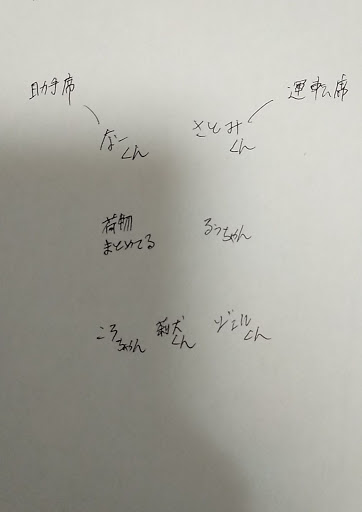 助手席
運転席
なーくん
さとみくん
荷物
まとめてる
るぅちゃん
ころちゃん
莉犬くん
ジェルくん